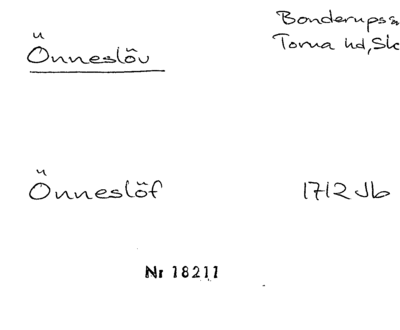 Önneslöv
Bonderups sn
Torna hd, Sk
Önneslöf
1712 Jb
Nr 18211